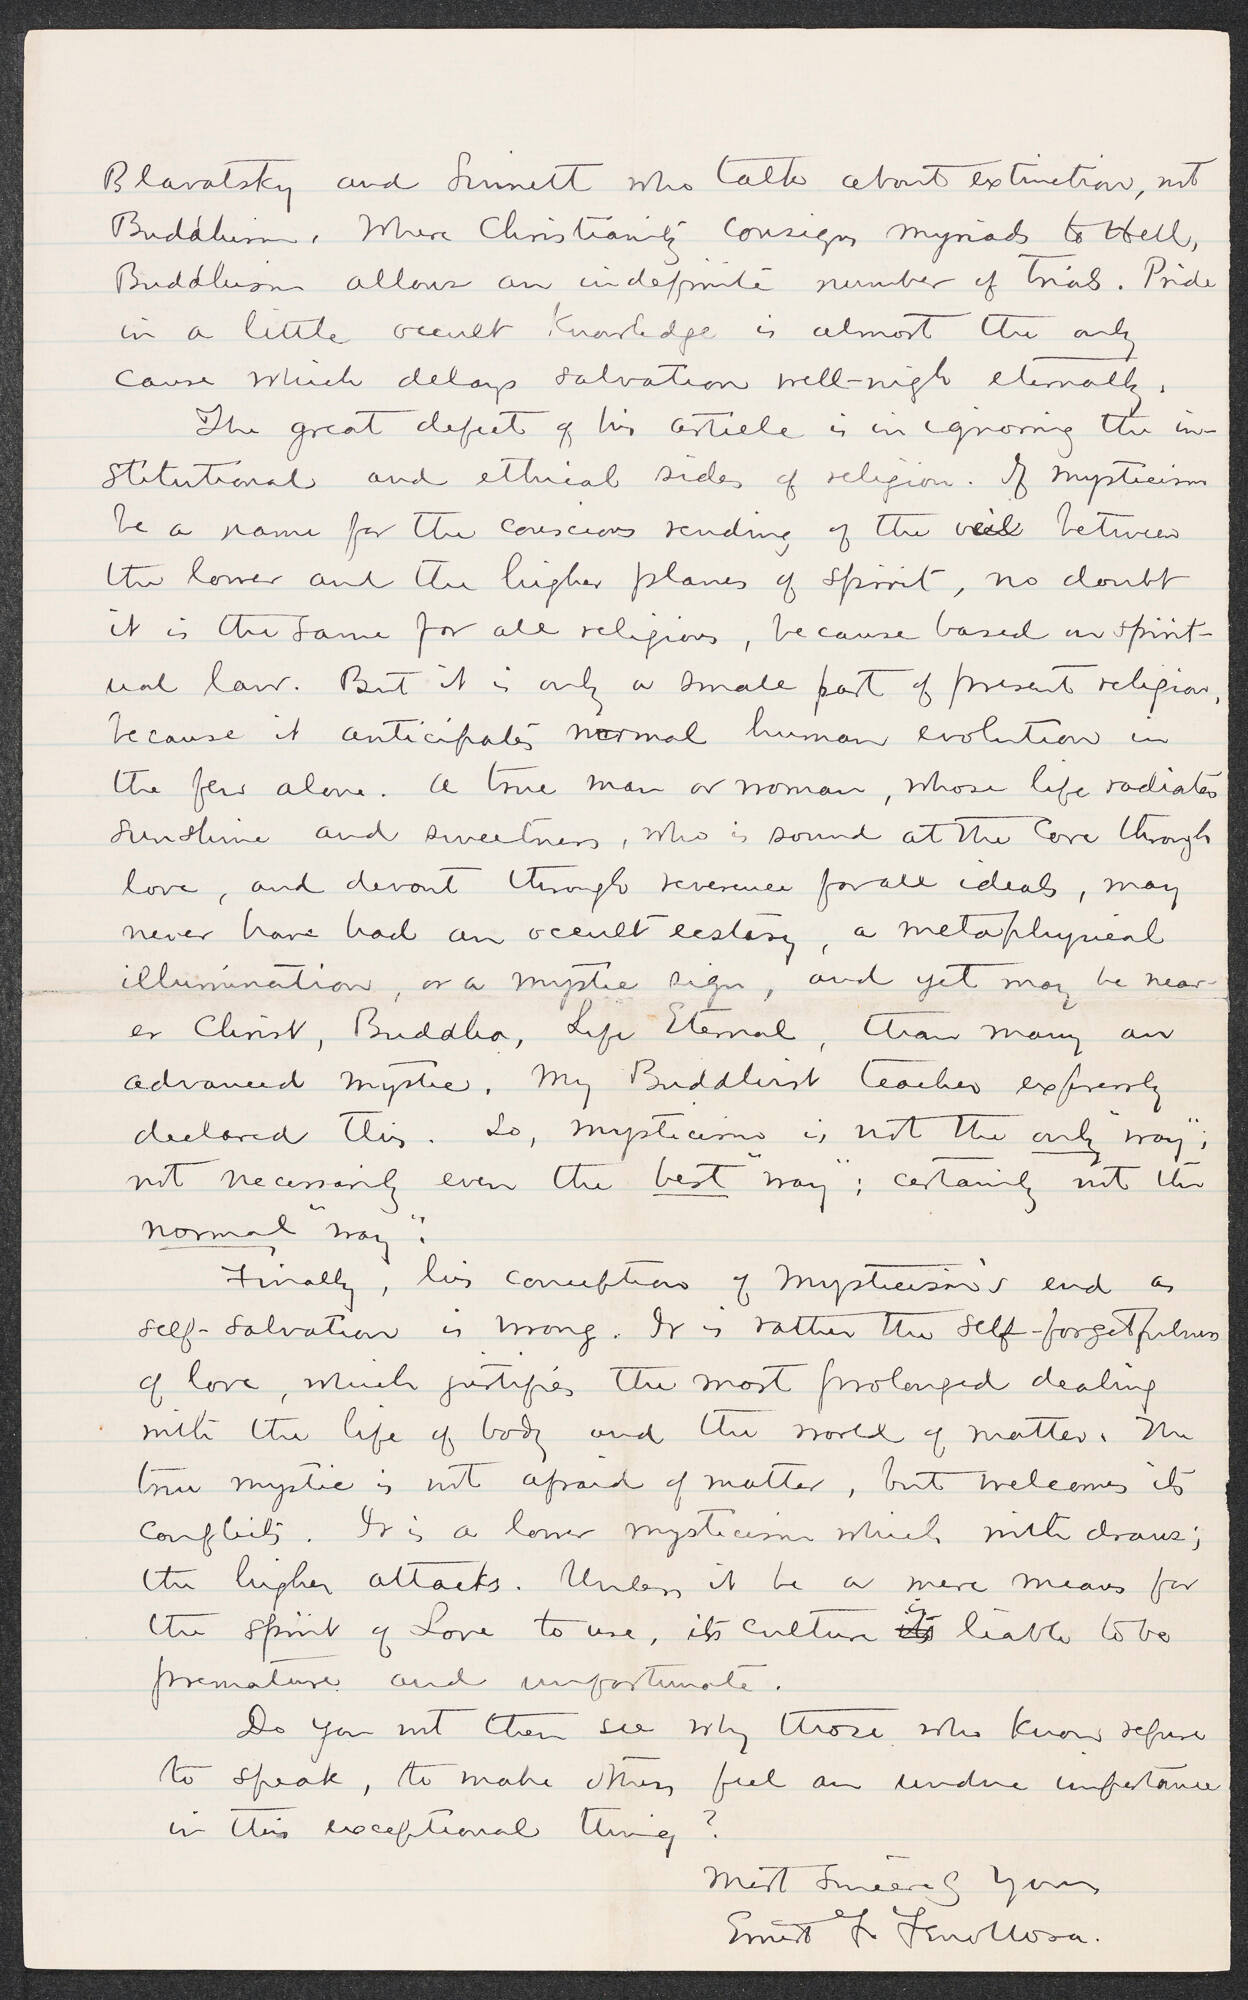 Blavatsky and Sinnett who talk about extinction, not
Buddhism. Where Christianity consigns myriads to Hell,
Buddhism allows an indefinite number of trials. Pride
in a little occult Knowledge is almost the only
cause which delays salvation well-nigh eternally.
The great defect of his article is in ignoring the in-
stitutional and ethical sides of religion. If mysticism
be a name for the conscious rending of the veil between
the lower and the higher planes of spirit, no doubt
it is the same for all religions, because based on spirit-
ual law. But it is only a small part of present religion,
because it anticipates normal human evolution in
the few alone. A true man or woman, whose life radiates
sunshine and sweetness, who is sound at the core through
love, and devout through reverence for all ideals, may
never have had an occult ecstasy, a metaphysical
illumination, or a mystic sign, and yet may be near-
er Christ, Buddha, Life Eternal, than many an
advanced mystic. My Buddhist teacher expressly
declared this. So, mysticism is not the only "way";
not necessarily even the best "way"; certainly not the
normal "way".
Finally, his conception of Mysticism's end as
self-salvation is wrong. It is rather the self-forgetfulness
of love, which justifies the most prolonged dealing
with the life of body and the world of matter. The
true mystic is not afraid of matter, but welcomes its
conflicts. It is a lower mysticism which withdraws;
the higher attacks. Unless it be a mere means for
the spirit of Love to use, its culture is liable to be
premature and unfortunate.
Do you not then see why those who know refuse
to speak, to make others feel an undue importance
in this exceptional thing?
Most Sincerely Yours
Ernest F. Fenollosa.